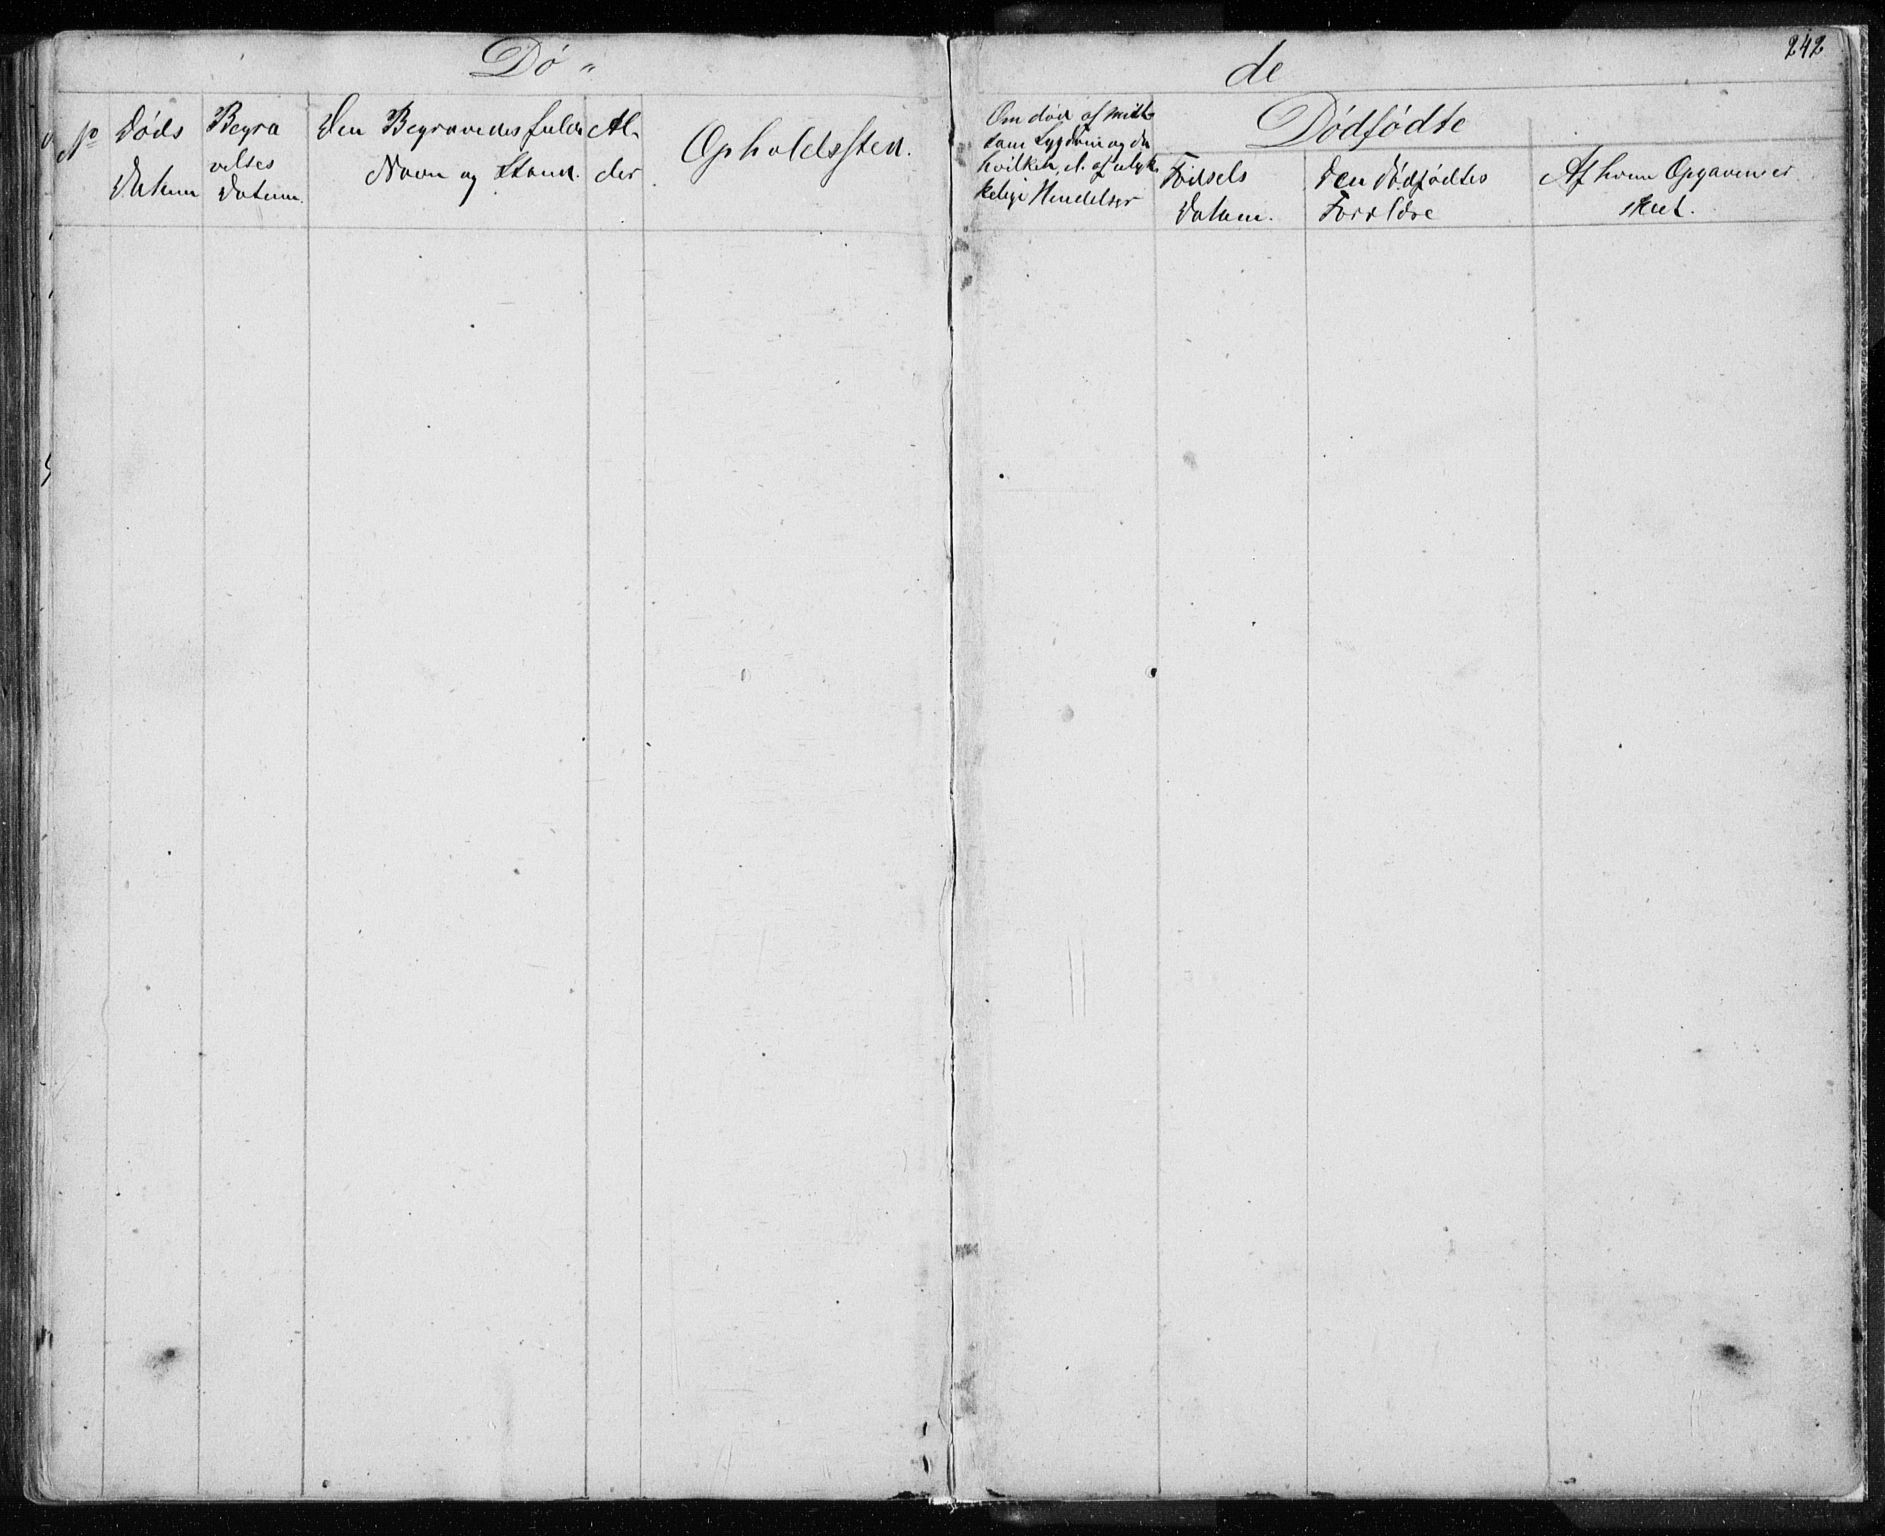 Dø „ de
242
No
Døds
Datum
Begra
velses
Datum.
Den Begravedes fulde
Navn og Stand.
Al-
der
Opholdssted.
Om død af smit-
som Sygdom og da
hvilken, el. af ulyk-
kelige Hendelser
Dødfødte
Fødsels
Datum.
Den dødfødtes
Forældre
Af hvem Opgaven er
skeet.